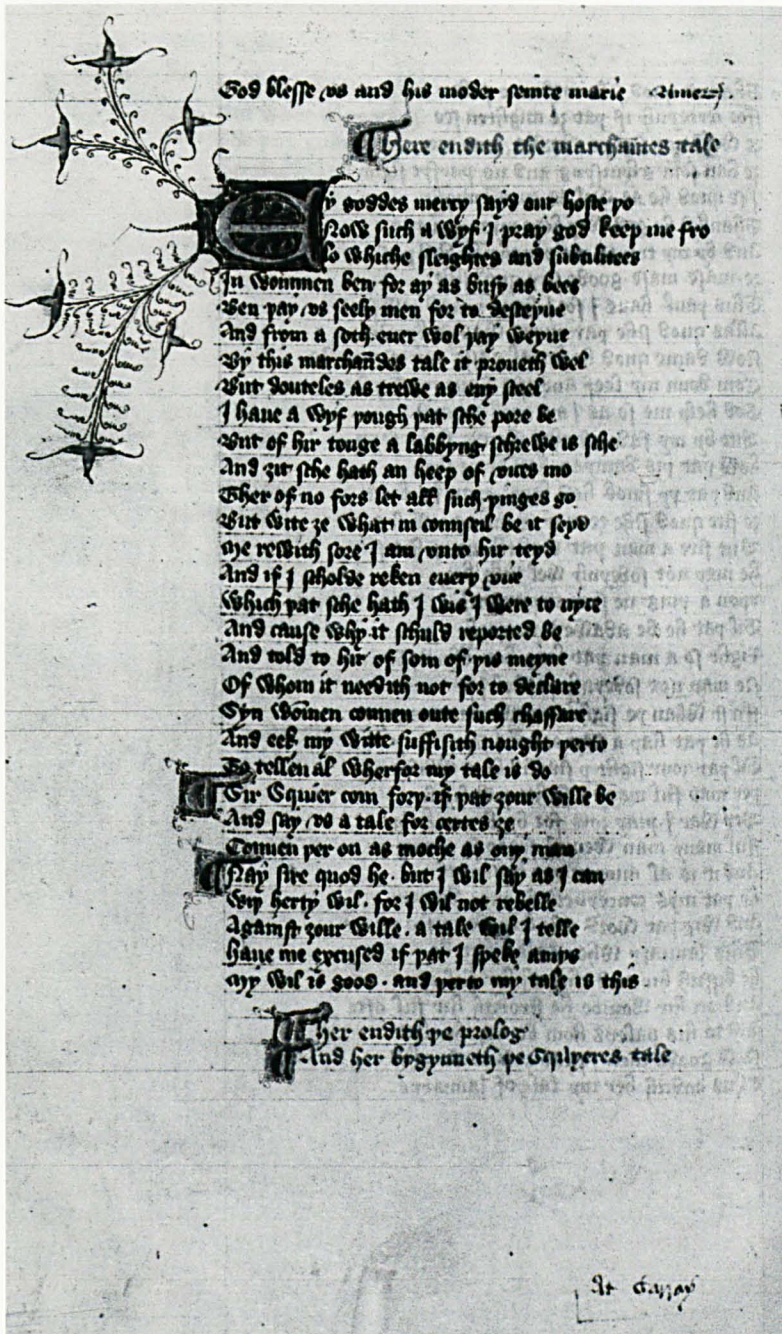 God blesse vs and his moder seinte marie Amen
Here endith the marchaundes tale
Ey goddes mercy sayd our hoste þo
Now such a wyf I pray god keep me fro
Lo whiche sleightes and subtilitees
In wommen ben for ay as busy as bees
Ben þay vs seely men for to desceyue
And from a soth euer wol þay weyue
By this marchaundes tale it proueth wel
But douteles as trewe as eny steel
I haue a wyf þough þat sche pore be
But of hir tonge a labbyng schrewe is sche
And ȝit sche hath an heep of vices mo
Ther of no fors let all such þinges go
But wite ȝe what in counseil be it seyd
Me rewith sore I am vnto hir teyd
And if I scholde reken euery vice
Which þat sche hath I wis I were to nyce
And cause why it schuld reported be
And told to hir of som of þis meyne
Of whom it needith not for to declare
Syn wommen connen oute such chaffare
And eek my witte suffisith nought þerto
To tellen al wherfor my tale is do
Sir Squier com forþ · if þat ȝour wille be
And say vs a tale for certes ȝe
Connen þer on as moche as ony man
Nay sire quod he · but I wil say as I can
Wiþ herty wil · for I wil not rebelle
Against ȝour wille · a tale wil I telle
haue me excused if þat I speke amys
My wil is good · and þerto my tale is this
Her endith þe prolog
And her bygynneth þe Squyeres tale
At